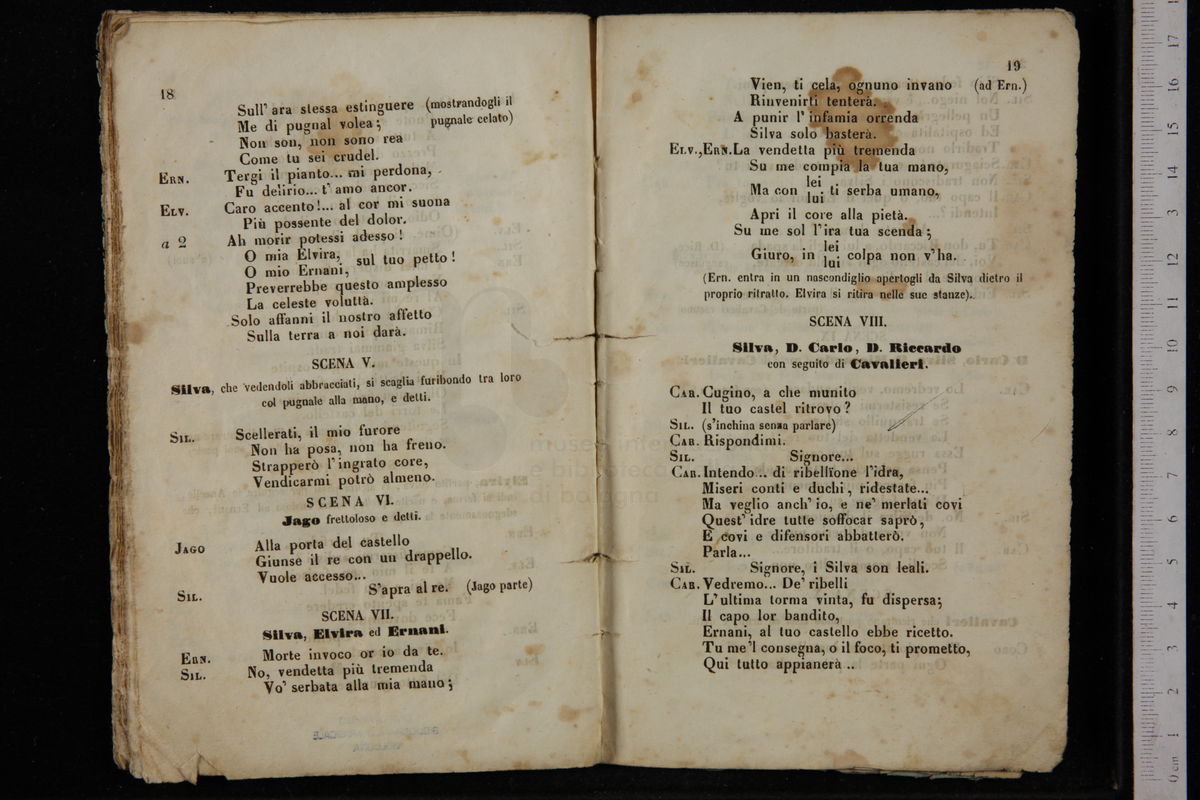 18
Sull' ara stessa estinguere (mostrandogli il
Me di pugnal volea; pugnale celato)
Non son, non sono rea
Come tu sei crudel.
ERN. Tergi il pianto... mi perdona,
Fu delirio... t' amo ancor.
ELV. Caro accento!... al cor mi suona
Più possente del dolor.
a 2 Ah morir potessi adesso!
O mia Elvira, sul tuo petto!
O mio Ernani,
Preverrebbe questo amplesso
La celeste voluttà.
Solo affanni il nostro affetto
Sulla terra a noi darà.
SCENA V.
Silva, che vedendoli abbracciati, si scaglia furibondo tra loro
col pugnale alla mano, e detti.
SIL. Scellerati, il mio furore
Non ha posa, non ha freno.
Strapperò l' ingrato core,
Vendicarmi potrò almeno.
SCENA VI.
Jago frettoloso e detti.
JAGO Alla porta del castello
Giunse il re con un drappello.
Vuole accesso...
SIL. S'apra al re. (Jago parte)
SCENA VII.
Silva, Elvira ed Ernani.
ERN. Morte invoco or io da te.
SIL. No, vendetta più tremenda
Vo' serbata alla mia mano;
19
Vien, ti cela, ognuno invano (ad Ern.)
Rinvenirti tenterà.
A punir l' infamia orrenda
Silva solo basterà.
ELV., ERN. La vendetta più tremenda
Su me compia la tua mano,
Ma con lei ti serba umano,
lui
Apri il core alla pietà.
Su me sol l'ira tua scenda;
Giuro, in lei colpa non v'ha.
lui
(Ern. entra in un nascondiglio apertogli da Silva dietro il
proprio ritratto. Elvira si ritira nelle sue stanze).
SCENA VIII.
Silva, D. Carlo, D. Riccardo
con seguito di Cavalieri.
CAR. Cugino, a che munito
Il tuo castel ritrovo?
SIL. (s'inchina senza parlare)
CAR. Rispondimi.
SIL. Signore...
CAR. Intendo... di ribellïone l'idra,
Miseri conti e duchi, ridestate...
Ma veglio anch' io, e ne' merlati covi
Quest' idre tutte soffocar saprò,
E covi e difensori abbatterò.
Parla...
SIL. Signore, i Silva son leali.
CAR. Vedremo... De' ribelli
L'ultima torma vinta, fu dispersa;
Il capo lor bandito,
Ernani, al tuo castello ebbe ricetto.
Tu me'l consegna, o il foco, ti prometto,
Qui tutto appianerà ..